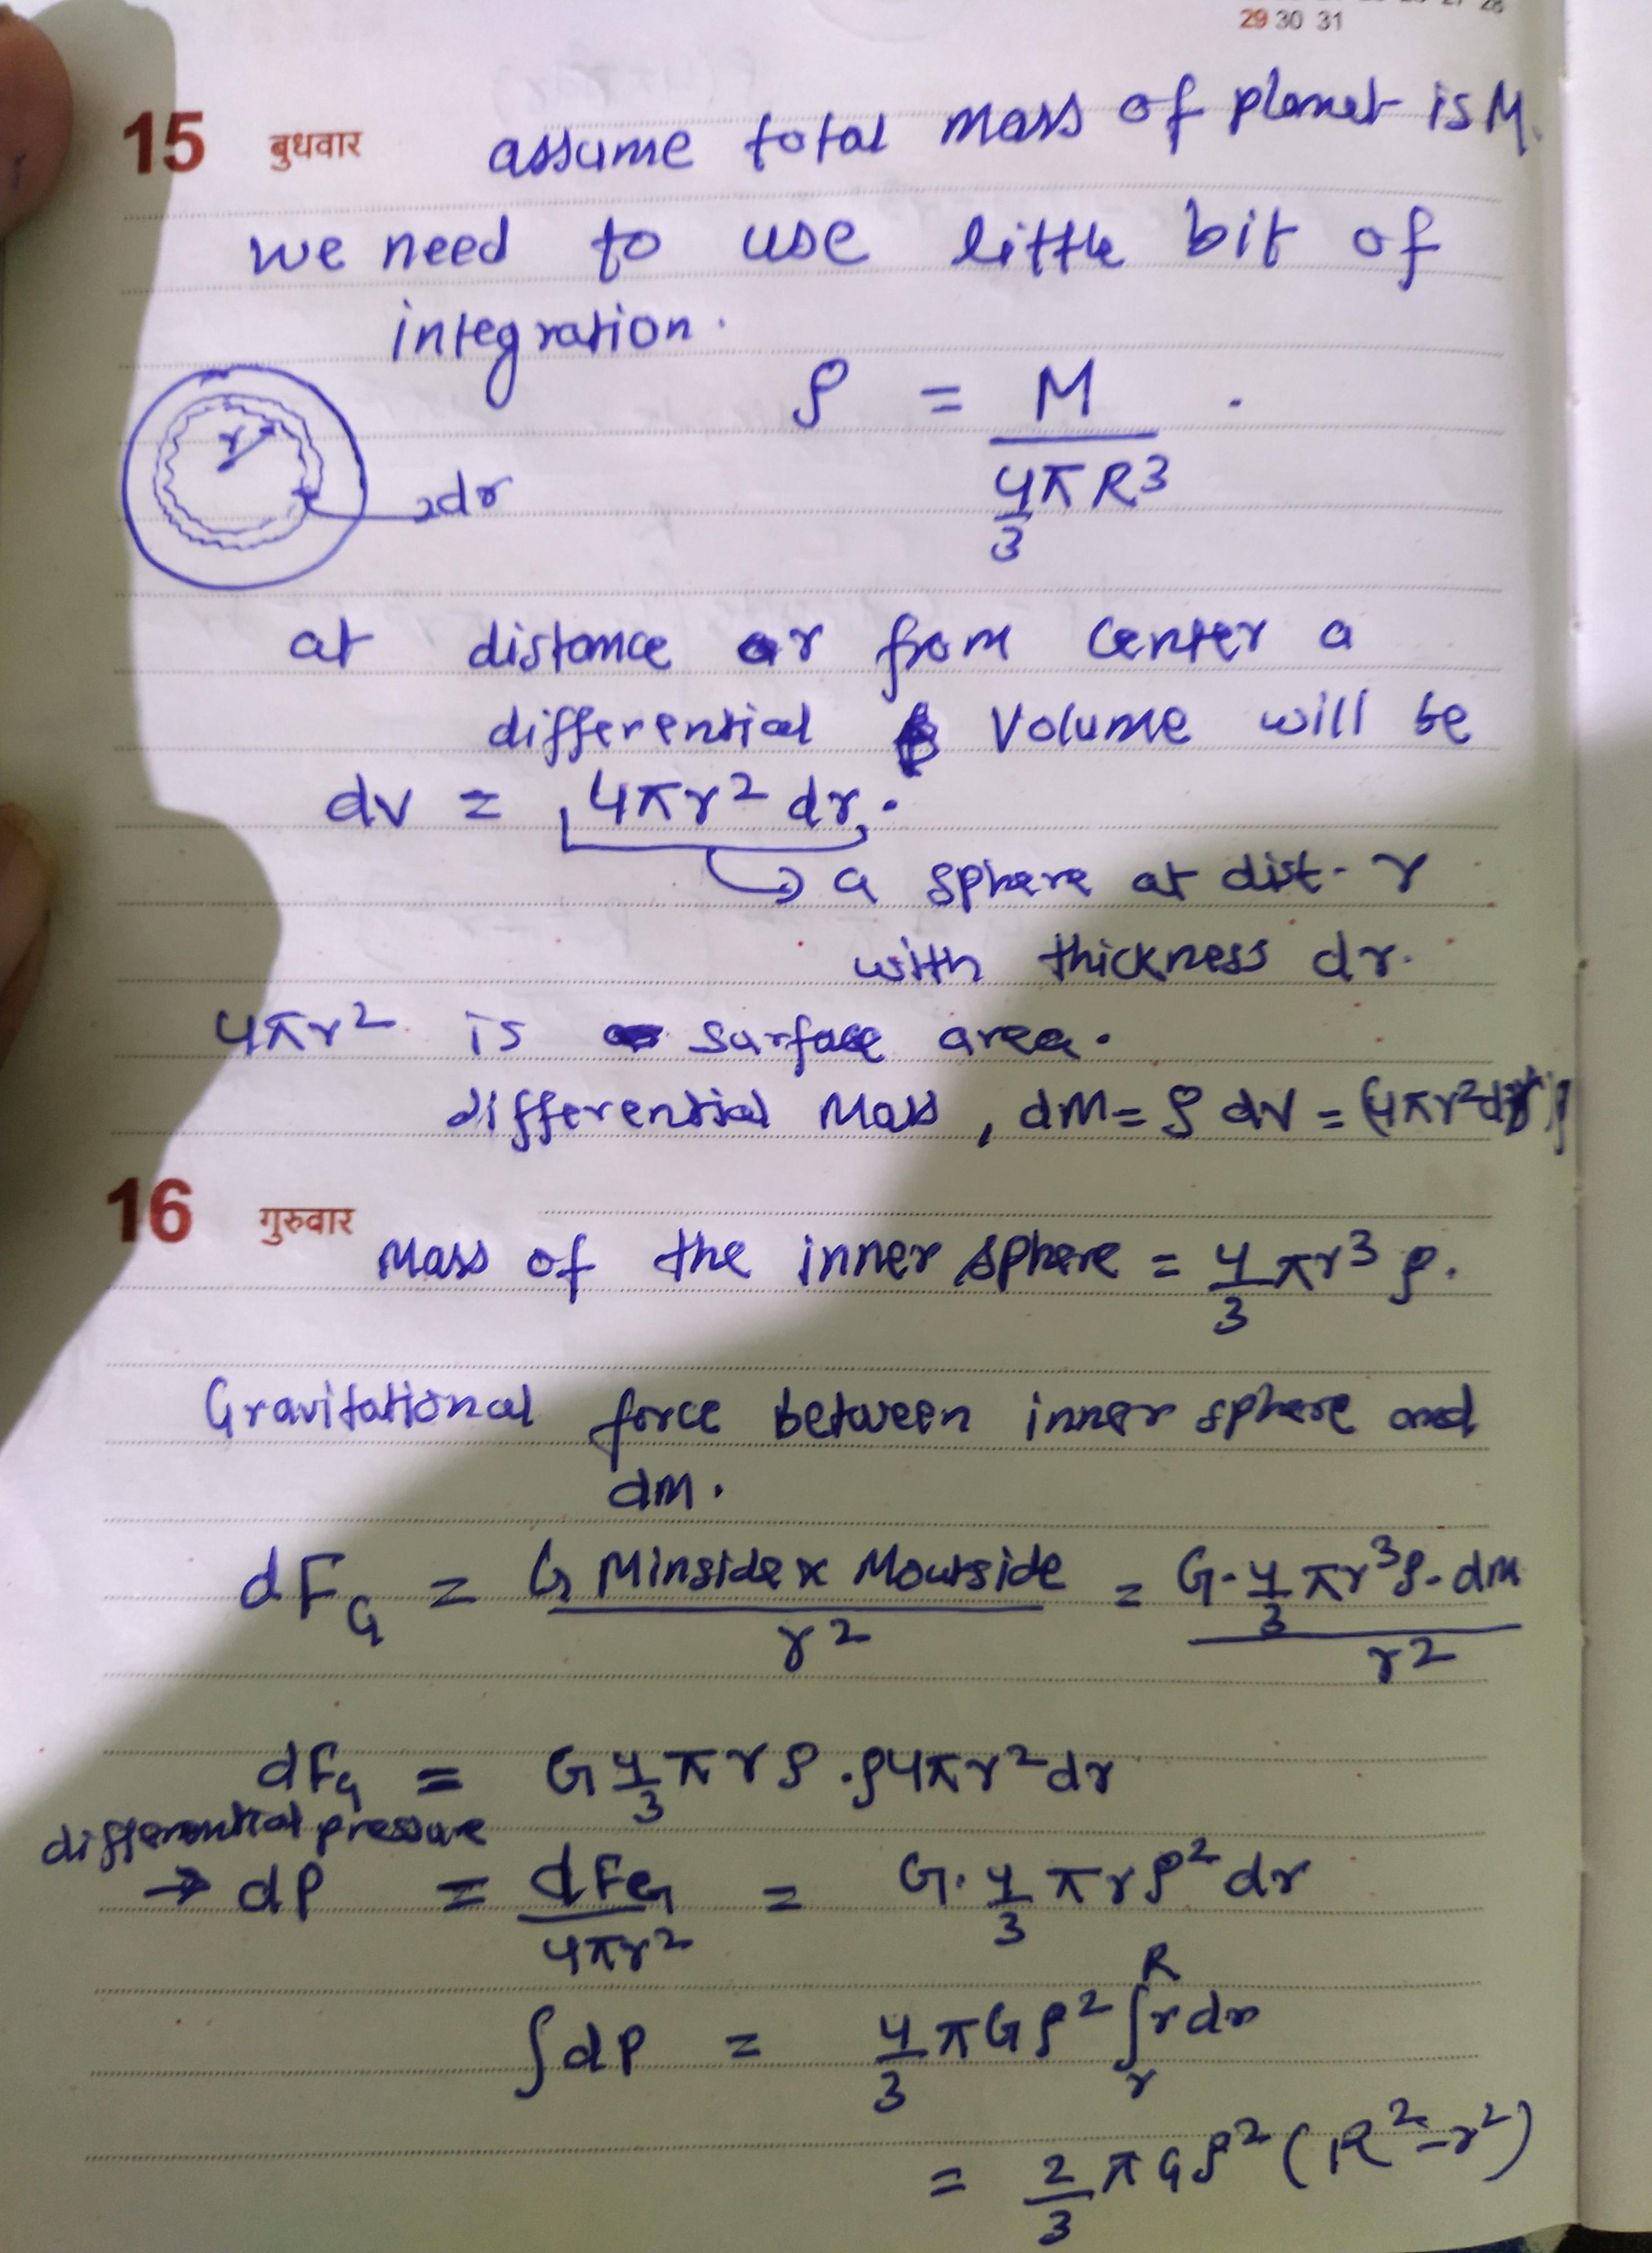 29 30 31
15 बुधवार assume total mass of planet is M.
we need to use little bit of
integration.
ρ = M / (4/3 πR³) .
r
dr
at distance r from center a
differential volume will be
dv = 4πr² dr.
→ a sphere at dist. r
with thickness dr.
4πr² is surface area.
differential mass, dm = ρ dv = (4πr²dr)ρ
16 गुरुवार Mass of the inner sphere = 4/3 πr³ ρ.
Gravitational force between inner sphere and
dm.
dF_G = G Minside x Moutside / r² = G. 4/3 πr³ρ. dm / r²
dF_G = G 4/3 πrρ . ρ4πr²dr
differential pressure
→ dP = dF_G / 4πr² = G. 4/3 πrρ² dr
∫dP = 4/3 πGρ² ∫_r^R rdr
= 2/3 πGρ² (R²-r²)